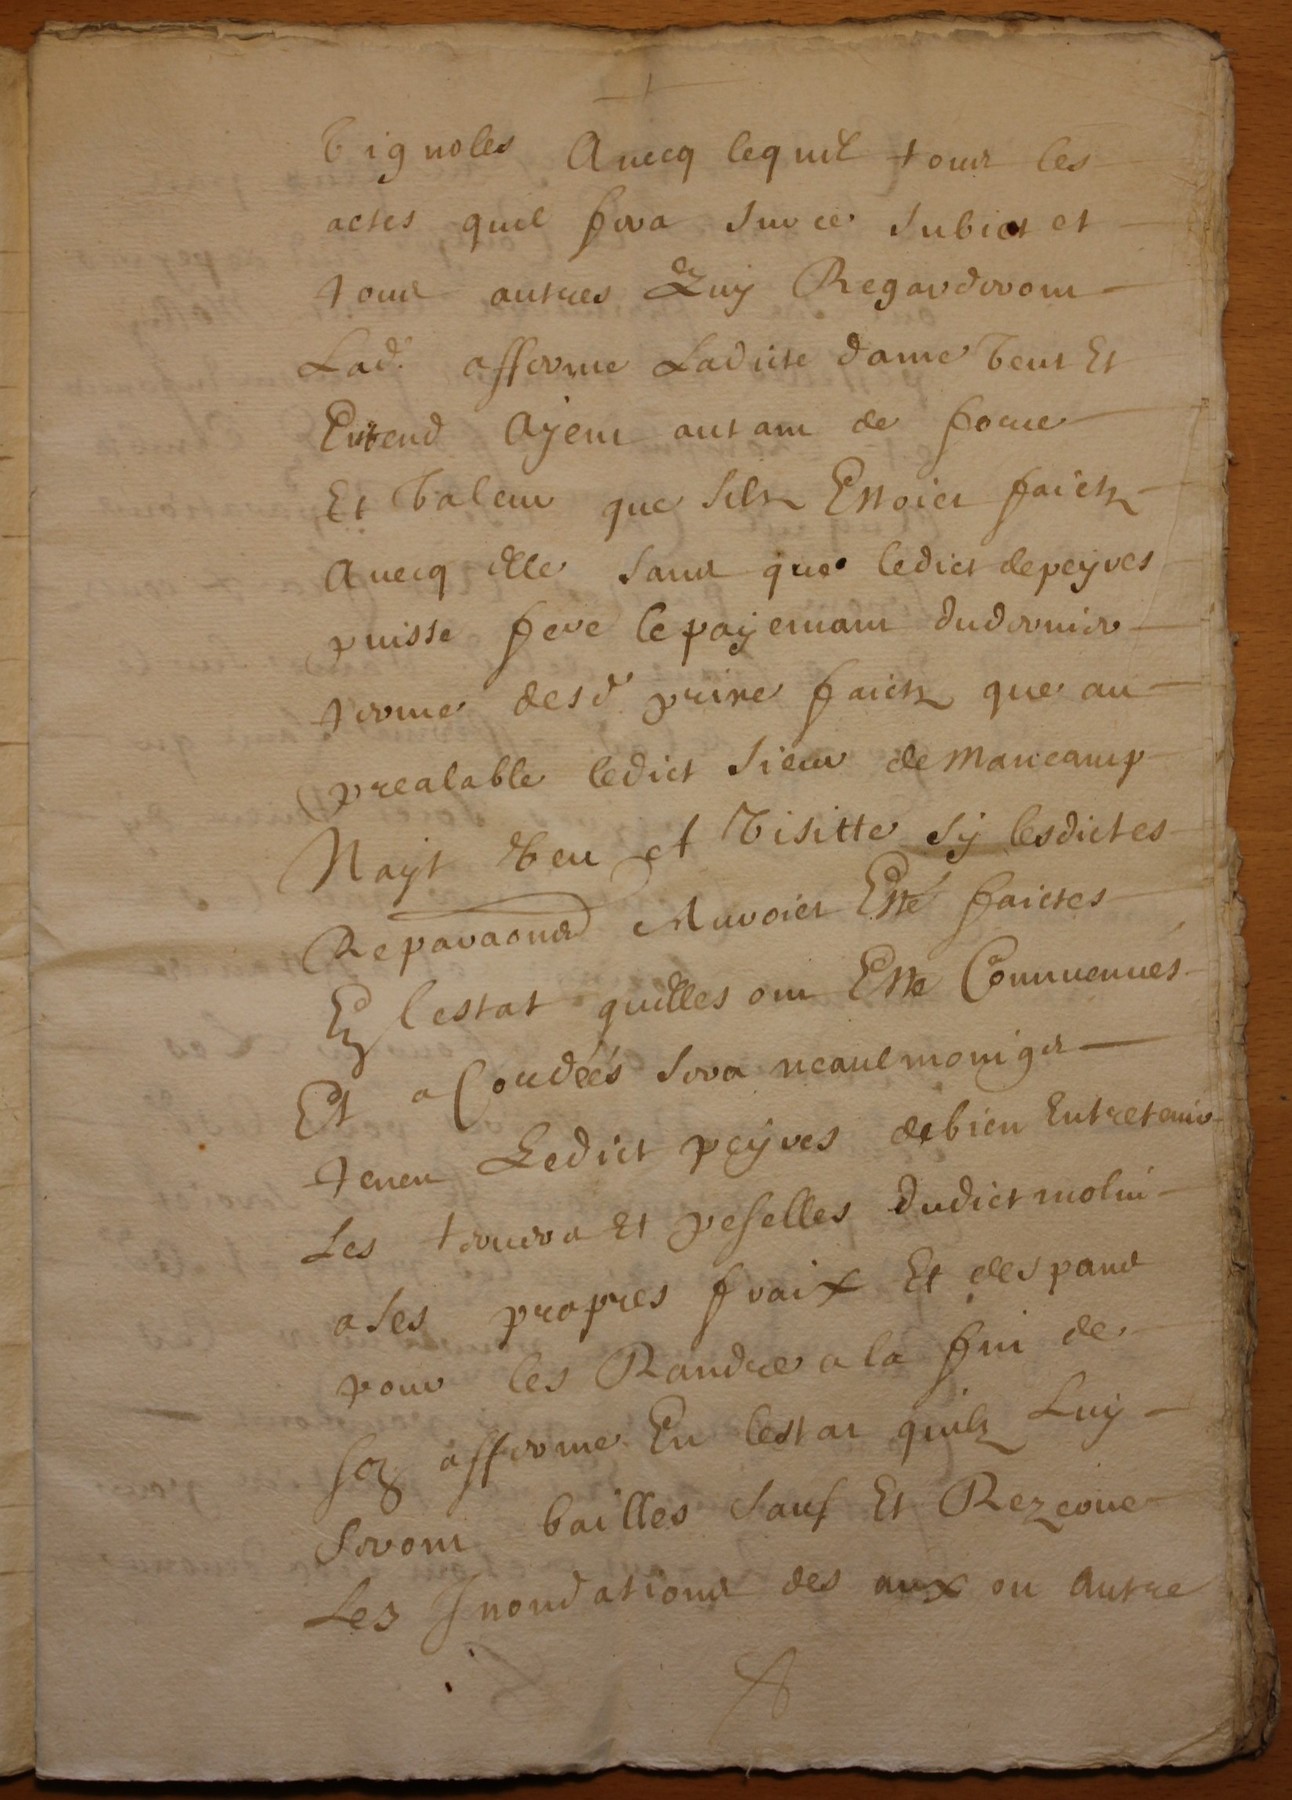 Vignoles Avecq lequel tous les
actes quil fera sur ce subiet et
tous autres quy Regarderont
Lad. afferme Ladicte dame veut Et
Entend Ayent autant de force
Et valeur que silz Estoict faictz
Avecq Elle sans que ledict de peyres
puisse fere le payemant du dernier
terme desd. prine faictz que au
prealable ledict sieur de Mancamp
Nayt veu et visitte sy lesdictes
Reparaons Auroict Esté faictes
En lestat quelles ont Esté Conuenues
Et a Cordées sera neaulmoings
tenu Ledict peyres de bien Entretenir
Les et peselles dudict molin
a ses propres fraix Et despans
pour les Randre a la fin de
son afferme En lestat quilz Luy
seront bailles sauf Et Rezerve
Les Inondations des aux ou autre